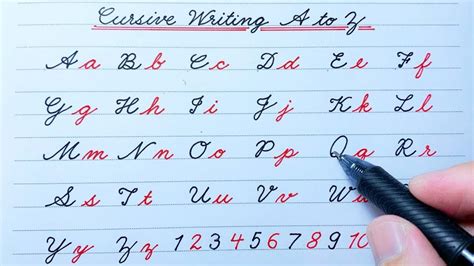 Cursive Writing A to Z
A a B b C c D d E e F f
G g H h I i J j K k L l
M m N n O o P p Q q R r
S s T t U u V v W
Y y Z z 1 2 3 4 5 6 7 8 9 10